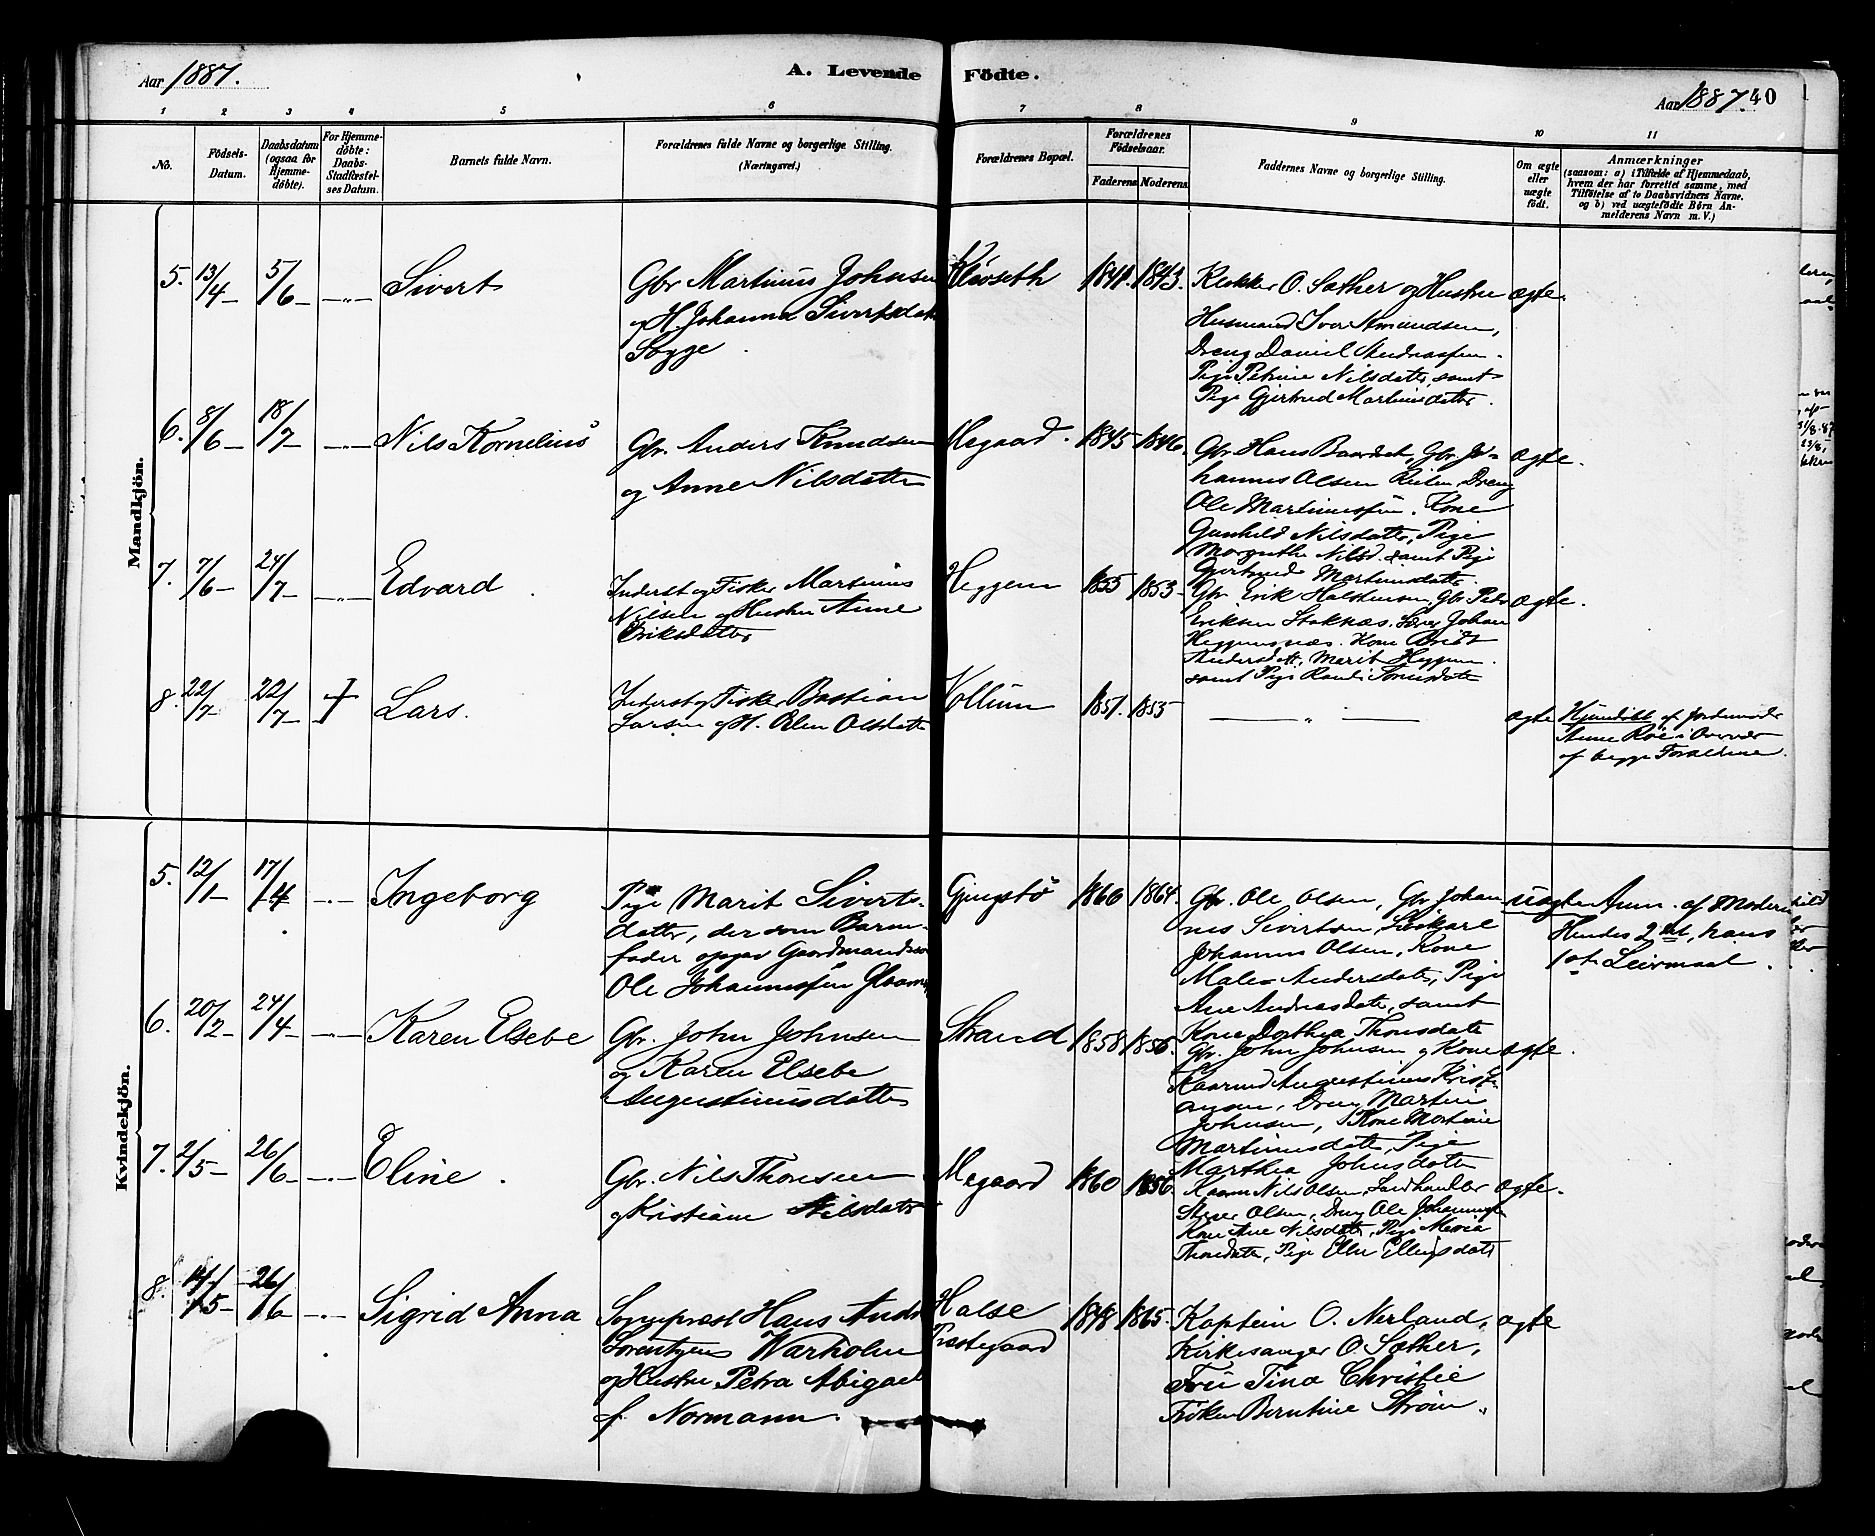 Aar 1887.
A. Levende Födte.
Aar 1887. 40
1 2 3 4 5 6 7 8 9 10 11
No.
Födsels-Datum.
Daabsdatum (ogsaa for Hjemme-döbte).
For Hjemme-döbte: Daabs-Stadfæstel-ses Datum.
Barnets fulde Navn.
Forældrenes fulde Navne og borgerlige Stilling.
(Næringsvei.)
Forældrenes Bopæl.
Forældrenes Födselsaar.
Faderens Moderens
Faddernes Navne og borgerlige Stilling.
Om ægte eller uægte födt.
Anmærkninger
(saasom: a) i Tilfælde af Hjemmedaab,
hvem der har forrettet samme, med
Tilföielse af to Daabsvidners Navne,
og b) ved uægtefödte Börn An-
melderens Navn m. V.)
Mandkjön.
5. 13/4 5/6 Sivert
Gbr Martinus Johnsen
og H. Johanna Sivertsdatt
Sogge.
1843.
Klokker O. Sæther og Hustru
Husmand Iver Amundsen,
Dreng Daniel Andreassen.
Pige Petrine Nilsdatter, samt
Pige Gjertrud Martinsdatter.
ægte.
6. 8/6 18/7 Nils Kornelius
Gbr. Anders Knudsen
og Anne Nilsdatter
Megaard. 1845 1846.
Gbr. Hans Gbr. Jo-
hannes Olsen Dreng
Ole Martinussen. Kone
Gunhild Nilsdatter, Pige
Nilsd. samt Pige
Gjertrud Martinusdatter.
ægte.
7. 7/6 24/7 Edvard.
Inderst og Fisker Martinus
Nilsen og Hustru Anne
Eriksdatter
Heggem 1855 1853
Gbr. Erik Halstensen, Gbr Peder
Eriksen Stoknæs. Johan
Heggemsnæs. Kone
Andersdatt, Marit Heggem.
samt Pige
ægte.
8. 22/7 22/7 Lars.
Inderst og Fisker Bastian
Larsen og H. Olsdatter
Vollum 1851. 1855
ægte
Hjemdøbt af Jordemoder
Anne i Overvær
af begge Forældrene.
Kvindekjön.
5. 12/1 17/4 Ingeborg
Pige Marit Siverts-
datter, der som Barne-
fader opgav Gaardmandssøn
Ole Johannessen
1866 1864.
Gbr. Ole Olsen, Gbr. Johan-
nes Sivertsen,
Johannes Olsen, Kone
Andersdatter, Pige
Ane Andreasdatter, samt
Kone Dorthea Thomsdatter
uægte
Anm. af Moderen
Hendes 2det, hans
1ste Leiermaal.
6. 20/2 24/4 Karen Elsebe
Gbr. John Johnsen
og Karen Elsebe
Augustinusdatter
Strand 1858 1856.
Gbr. John Johnsen og Kone
Augustinus Krist-
Dreng Martin
Johnsen, Kone
Martinusdatter, Pige
Marthea Johnsdatter
ægte.
7. 2/5 26/6 Eline.
Gbr. Nils Thoresen
og Kristiane Nilsdatter
Megaard 1860 1856.
Nils Olsen, Landhandler
Olsen, Dreng Ole
Kone Ane Nilsdatter, Pige
Pige Ellen Ellingsdatt
ægte.
8. 14/5 26/6 Sigrid Anna
Sognepræst Hans
Lorentzen Warholm
og Hustru Petra Abigael
f. Normann.
Halse
Præstegaard 1848 1865.
Kaptein O. Nerland,
Kirkesanger O. Sæther,
Fru Tina Christie
Frøken Berntine Strøm.
ægte